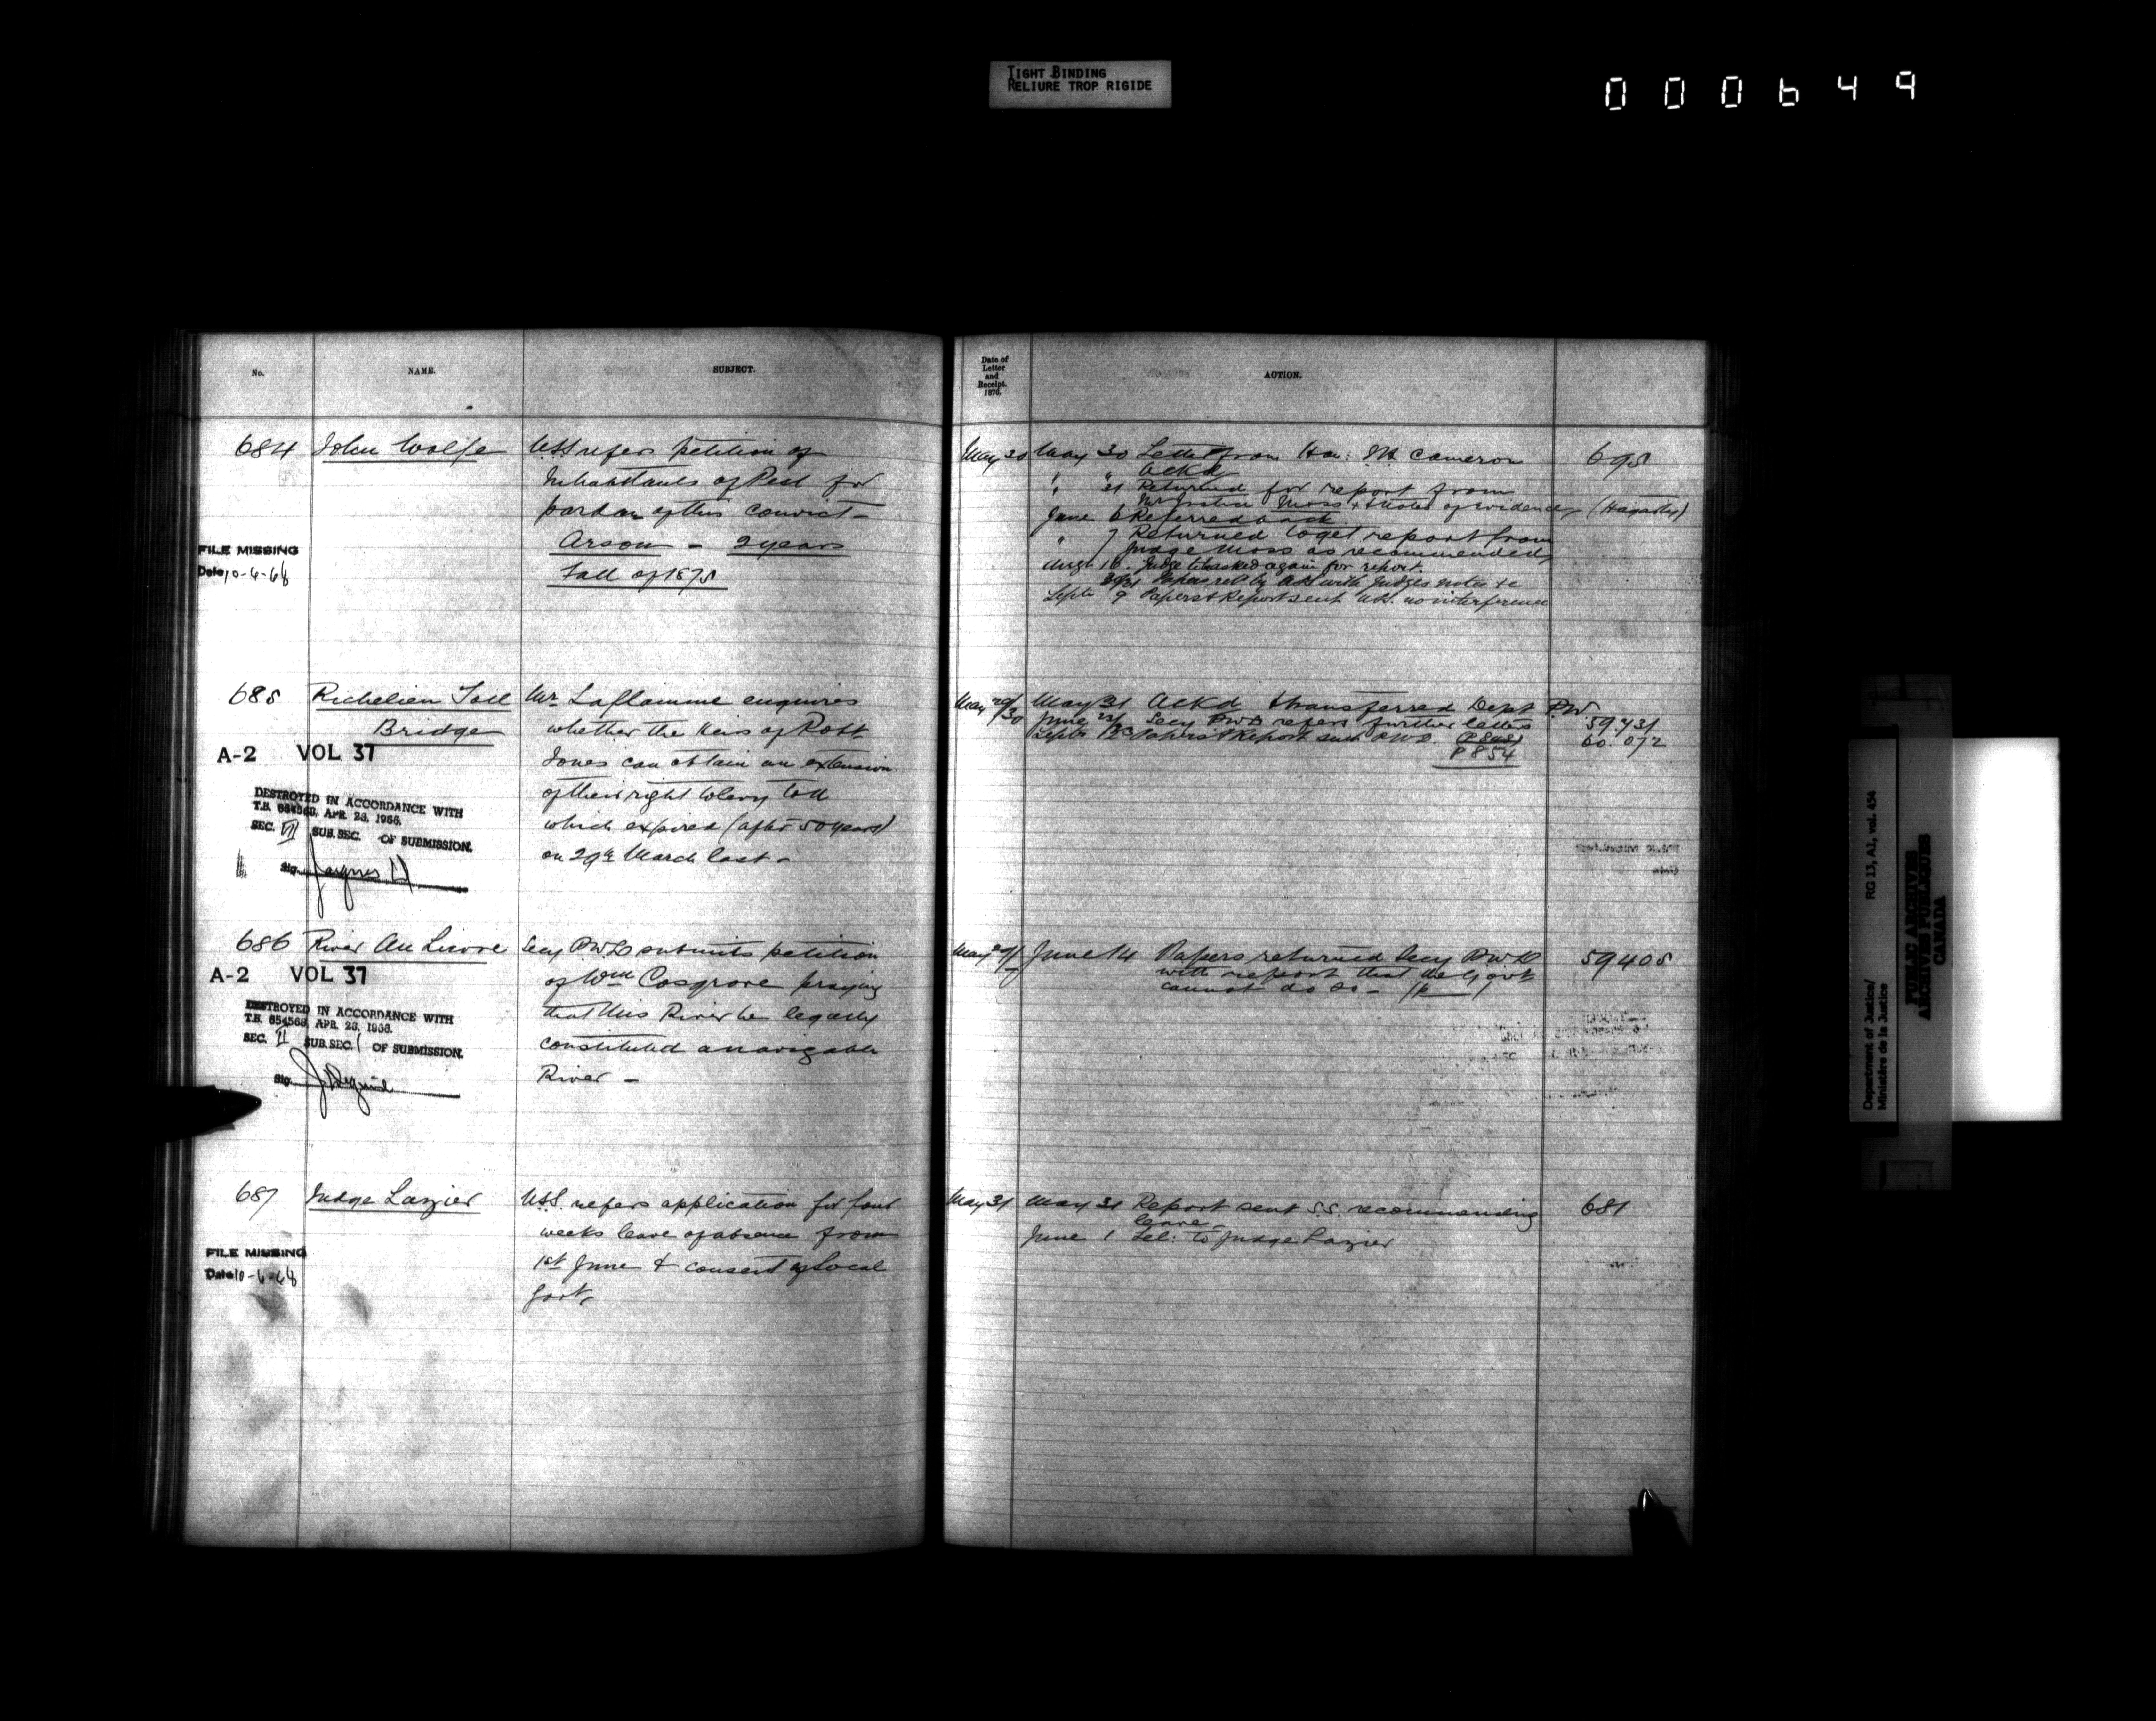 TIGHT BINDING
RELIURE TROP RIGIDE
000649
No.
NAME.
SUBJECT.
684 John Wolfe
USS refers petition of
Inhabitants of Peel for
pardon of this convict -
Arson - 2 years
Fall of 1875
FILE MISSING
Date 10-6-68
685 Richelieu Toll
Bridge
A-2 VOL 37
DESTROYED IN ACCORDANCE WITH
T.B. 654568, APR. 28, 1966.
SEC. VII SUB. SEC. OF SUBMISSION.
Sig.
Mr Laflamme enquires
whether the heirs of Robt
Jones can obtain an extension
of their right to levy toll
which expired (after 50 years)
on 29th March last -
686 River Au Lievre
A-2 VOL 37
DESTROYED IN ACCORDANCE WITH
T.B. 654568, APR. 28, 1966.
SEC. II SUB. SEC. 1 OF SUBMISSION.
Sig.
Secy PWD submits petition
of Wm Cosgrove praying
that this River be legally
constituted a navigable
River -
687 Judge Lazier
USS. refers application for four
weeks leave of absence from
1st June & consent of Local
Govt.
FILE MISSING
Date 10-6-68
Date of
Letter
and
Receipt.
1876.
ACTION.
May 30 May 30 Letter from Hon: M Cameron 695
Ackd
" 31 Returned for report from
Mr Justice Moss & notes of evidence (Hagarty)
June 6 Referred back
" 7 Returned to get report from
Judge Moss as recommended
Augt 16. Judge asked again for report.
30/31 Papers ret by USS with Judges notes &c
Septr 9 Papers & Report sent USS. no interference
May 29/30 May 31 Ackd transferred Dept P.W
June Secy PWD refers further letters 59.431
Septr Papers & Report sent PWD. 60.072
P 854
May 29/ June 14 Papers returned Secy PWD 59405
with report that the Govt
cannot do so -
May 31 May 31 Report sent S.S. recommending 681
leave -
June 1 Tel: to Judge Lazier
Department of Justice/
Ministère de la Justice
RG 13, A1, vol. 454
PUBLIC ARCHIVES
ARCHIVES PUBLIQUES
CANADA